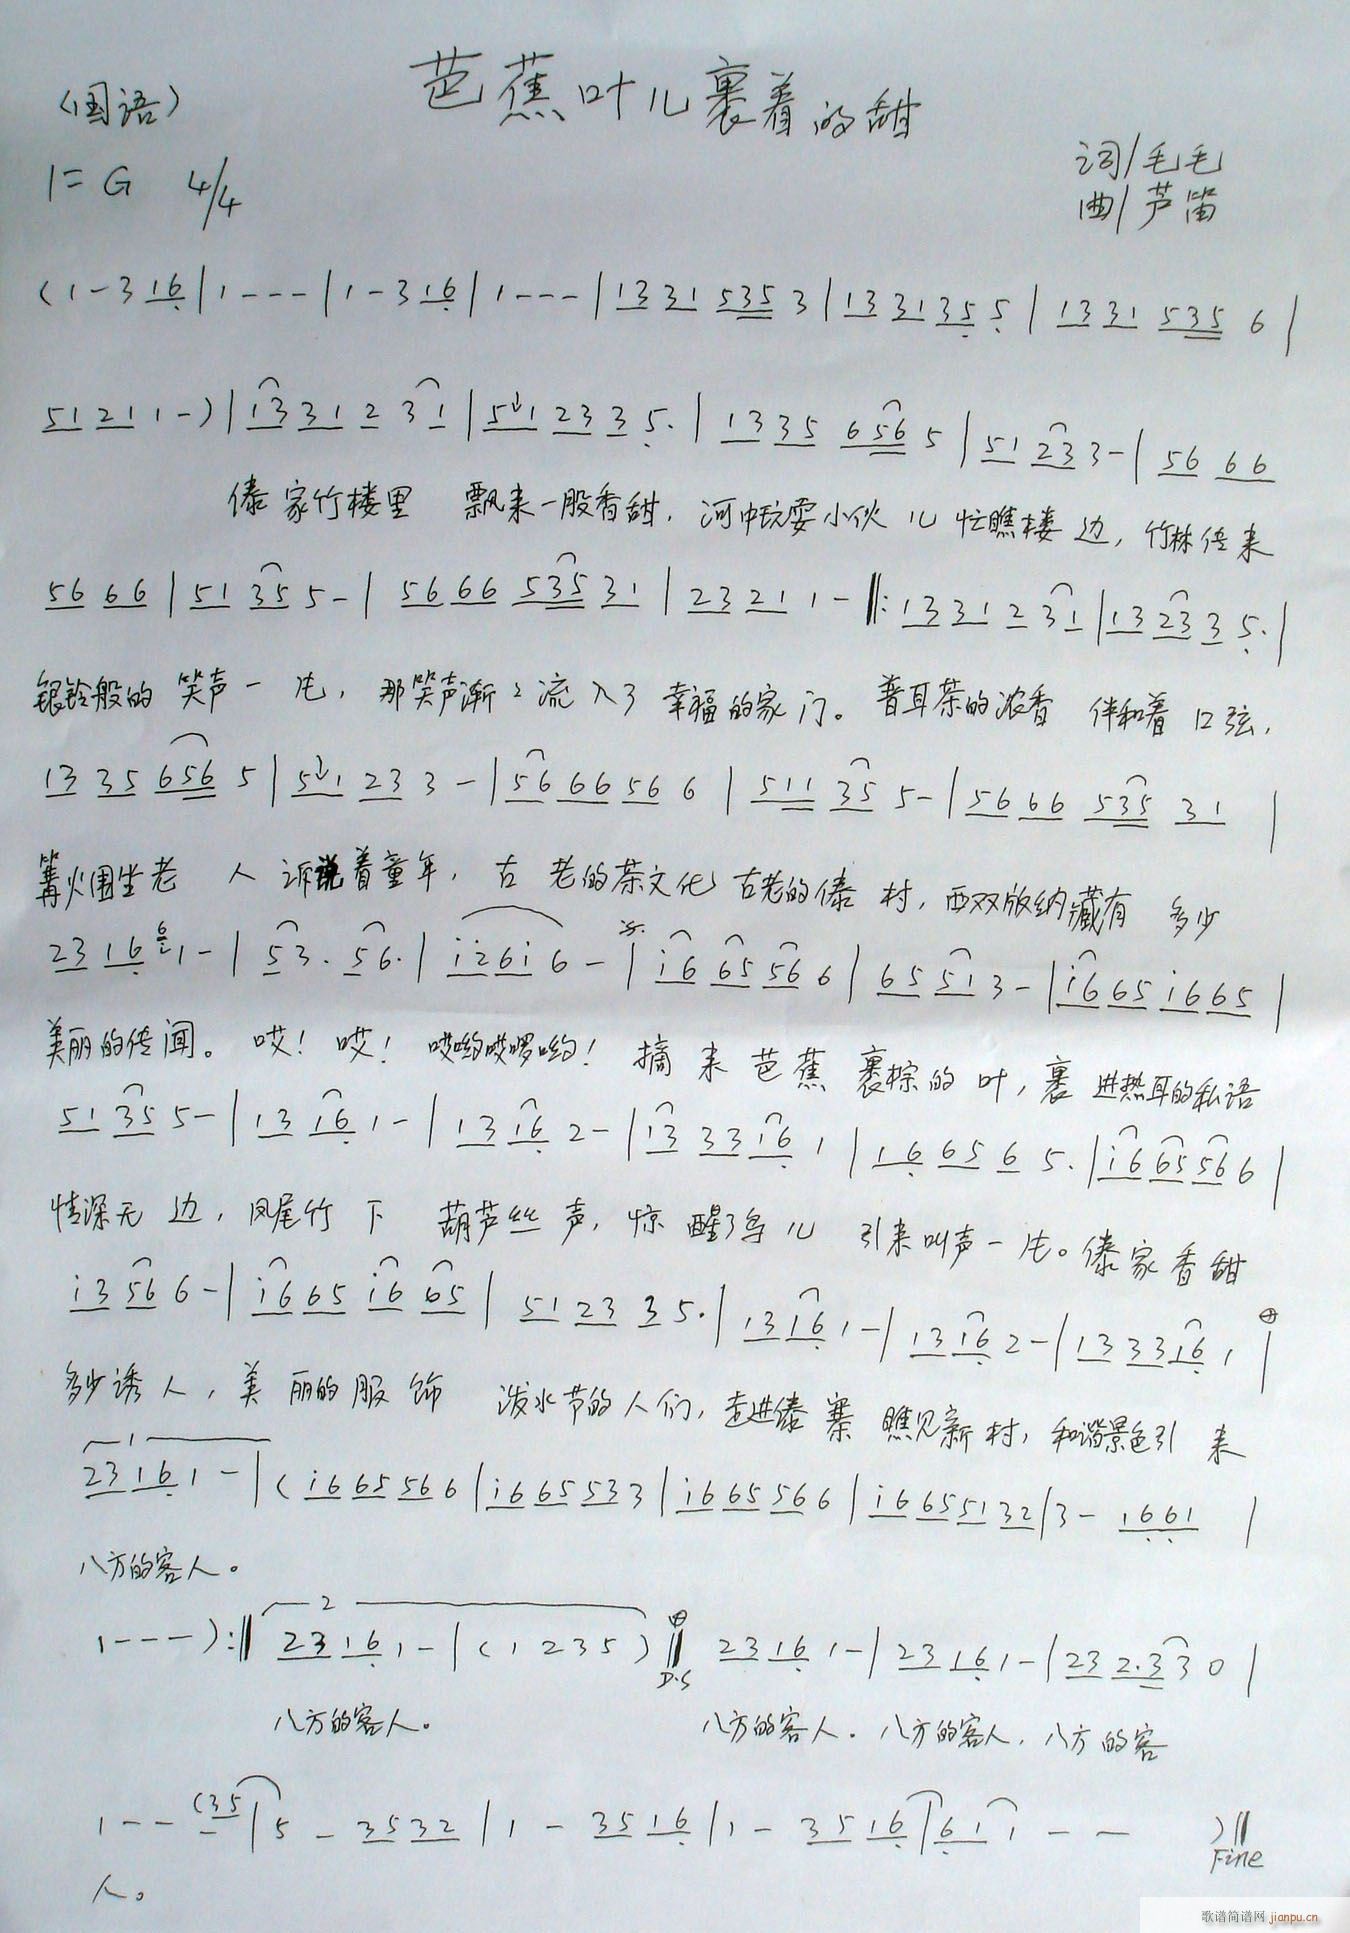 芭蕉叶儿裹着的甜
(国语)
1=G 4/4
词/毛毛
曲/芦笛
(1-3 16|1---|1-3 16|1---|13 31 535 3|13 31 35 5|13 31 535 6|
51 21 1-)|13 31 2 31|51 23 3 5.|13 35 656 5|51 23 3-|56 66
傣家竹楼里 飘来一股香甜, 河中玩耍小伙儿忙瞧楼边, 竹林传来
56 66|51 35 5-|56 66 535 31|23 21 1-‖:13 31 2 31|13 23 3 5.|
银铃般的笑声一片, 那笑声渐々流入了幸福的家门。普耳茶的浓香 伴和着口弦,
13 35 656 5|51 23 3-|56 66 56 6|511 35 5-|56 66 535 31|
篝火围坐老人诉说着童年, 古老的茶文化古老的傣村, 西双版纳藏有多少
23 16 6 1-|53. 56.|i26i 6-|i6 65 56 6|65 51 3-|i6 65 i6 65|
美丽的传闻。哎! 哎! 哎哟哎啰哟! 摘来芭蕉裹棕的叶, 裹进热耳的私语
51 35 5-|13 16 1-|13 16 2-|13 33 16 1|16 65 6 5.|i6 65 56 6|
情深无边, 凤尾竹下 葫芦丝声, 惊醒了鸟儿 引来叫声一片。傣家香甜
i3 56 6-|i6 65 i6 65|51 23 3 5.|13 16 1-|13 16 2-|13 33 16 1|
多少诱人, 美丽的服饰 泼水节的人们, 走进傣寨瞧见新村, 和谐景色引来
1
23 16 1-|(i6 65 56 6|i6 65 53 3|i6 65 56 6|i6 65 51 32|3- 1661|
八方的客人。
2
1---):‖23 16 1-|(1 2 3 5)‖D.S 23 16 1-|23 16 1-|23 2.3 3 0|
八方的客人。 八方的客人. 八方的客人, 八方的客
1--(35|5-35 32|1-35 16|1-35 16|61 1-- )‖
Fine
人。
歌谱简谱网 jianpu.cn